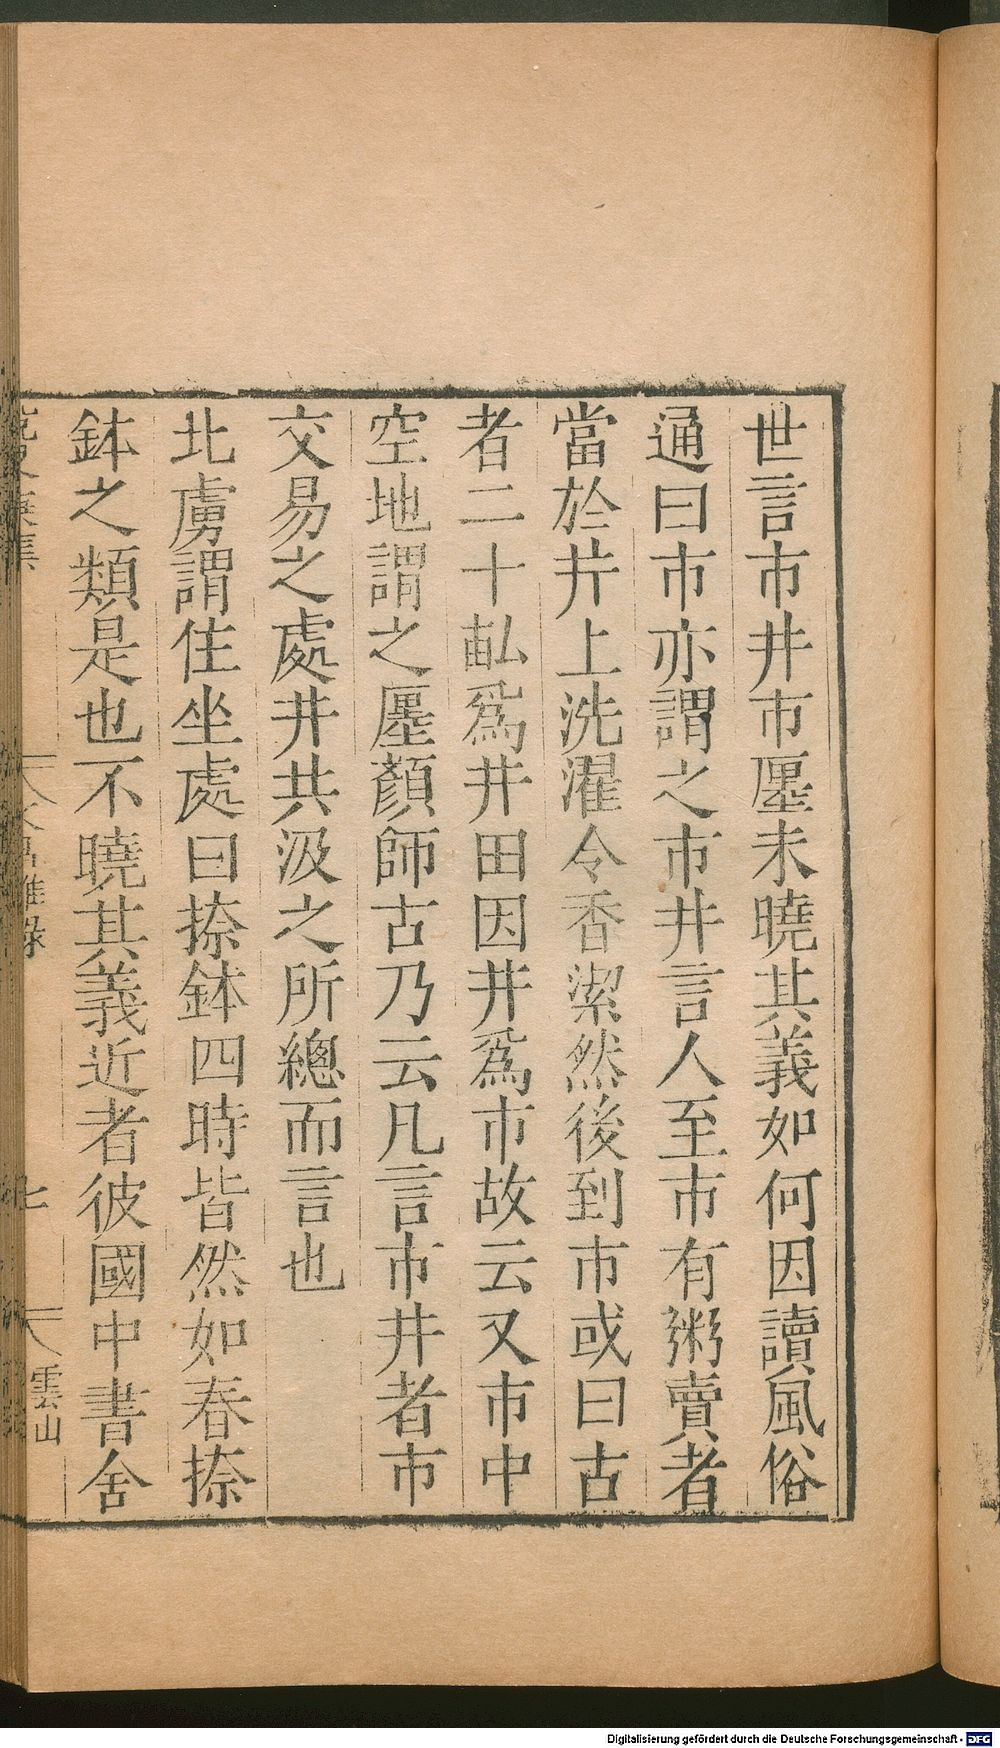 世言市井市㕓未曉其義如何因讀風俗
通曰市亦謂之市井言人至市有粥賣者
當於井上洗濯令香潔然後到市或曰古
者二十畝爲井田因井爲市故云又市中
空地謂之㕓顏師古乃云凡言市井者市
交易之處井共汲之所總而言也
北虜謂住坐處曰捺鉢四時皆然如春捺
鉢之類是也不曉其義近者彼國中書舍
七
雲山
Digitalisierung gefördert durch die Deutsche Forschungsgemeinschaft - DFG